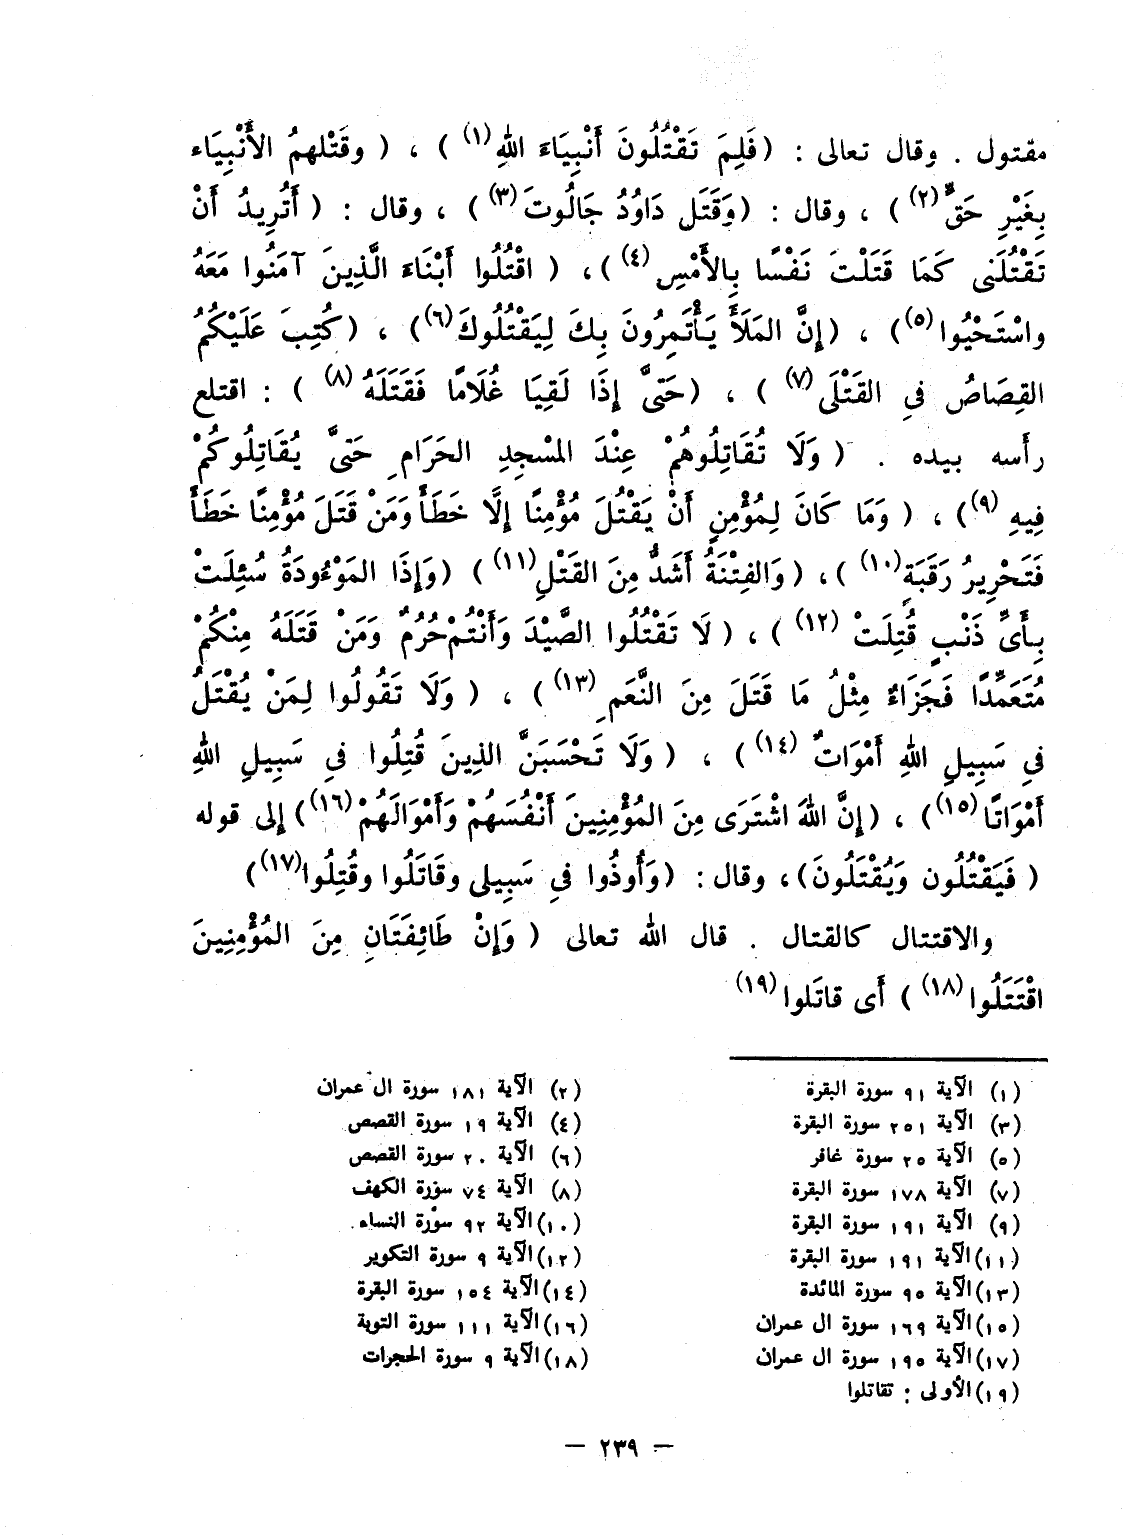 مقتول . وقال تعالى : (فَلِمَ تَقْتُلُونَ أَنْبِيَاءَ اللهِ(١) ) ، ( وقَتْلهمُ الأَنْبِيَاء
بِغَيْرِ حَقٍّ(٢) ) ، وقال : (وَقَتَل دَاوُدُ جَالُوتَ(٣) ) ، وقال : ( أَتُرِيدُ أَنْ
تَقْتُلَنِى كَمَا قَتَلْتَ نَفْسًا بِالأَمْسِ(٤))، ( اقْتُلُوا أَبْنَاءَ الَّذِينَ آمَنُوا مَعَهُ
واسْتَحْيُوا(٥)) ، (إِنَّ المَلَأَ يَأْتَمِرُونَ بِكَ لِيَقْتُلُوكَ(٦)) ، (كُتِبَ عَلَيْكُمُ
القِصَاصُ فِى القَتْلَى(٧) ) ، (حَتَّى إِذَا لَقِيَا غُلَامًا فَقَتَلَهُ(٨) ) : اقتلع
رأسه بيده . ( وَلَا تُقَاتِلُوهُمْ عِنْدَ المسْجِدِ الحَرَامِ حَتَّى يُقَاتِلُوكُمْ
فِيهِ(٩)) ، ( وَمَا كَانَ لِمُؤْمِنٍ أَنْ يَقْتُلَ مُؤْمِنًا إِلَّا خَطَأً وَمَنْ قَتَلَ مُؤْمِنًا خَطَأً
فَتَحْرِيرُ رَقَبَةٍ(١٠) )، ( وَالفِتْنَةُ أَشَدُّ مِنَ القَتْلِ(١١) ) (وَإِذَا المَوْءُودَةُ سُئِلَتْ
بِأَىِّ ذَنْبٍ قُتِلَتْ(١٢) )، ( لَا تَقْتُلُوا الصَّيْدَ وَأَنْتُمْ حُرُمٌ وَمَنْ قَتَلَهُ مِنْكُمْ
مُتَعَمِّدًا فَجَزَاءٌ مِثْلُ مَا قَتَلَ مِنَ النَّعَمِ(١٣) ) ، ( وَلَا تَقُولُوا لِمَنْ يُقْتَلُ
فِى سَبِيلِ اللهِ أَمْوَاتٌ(١٤) ) ، ( وَلَا تَحْسَبَنَّ الذِينَ قُتِلُوا فِى سَبِيلِ اللهِ
أَمْوَاتًا(١٥) ) ، (إِنَّ اللهَ اشْتَرَى مِنَ المُؤْمِنِينَ أَنْفُسَهُمْ وَأَمْوَالَهُمْ(١٦)) إلى قوله
( فَيَقْتُلُون وَيُقْتَلُونَ)، وقال : (وَأُوذُوا فِى سَبِيلى وقَاتَلُوا وقُتِلُوا(١٧))
والاقتتال كالقتال . قال الله تعالى ( وَإِنْ طَائِفَتَانِ مِنَ المُؤْمِنِينَ
اقْتَتَلُوا(١٨) ) أَى قاتَلوا(١٩)
(١) الآية ٩١ سورة البقرة
(٢) الآية ١٨١ سورة ال عمران
(٣) الآية ٢٥١ سورة البقرة
(٤) الآية ١٩ سورة القصص
(٥) الآية ٢٥ سورة غافر
(٦) الآية ٢٠ سورة القصص
(٧) الآية ١٧٨ سورة البقرة
(٨) الآية ٧٤ سورة الكهف
(٩) الآية ١٩١ سورة البقرة
(١٠) الآية ٩٢ سورة النساء
(١١) الآية ١٩١ سورة البقرة
(١٢) الآية ٩ سورة التكوير
(١٣) الآية ٩٥ سورة المائدة
(١٤) الآية ١٥٤ سورة البقرة
(١٥) الآية ١٦٩ سورة ال عمران
(١٦) الآية ١١١ سورة التوبة
(١٧) الآية ١٩٥ سورة ال عمران
(١٨) الآية ٩ سورة الحجرات
(١٩) الأولى : تقاتلوا
— ٢٣٩ —